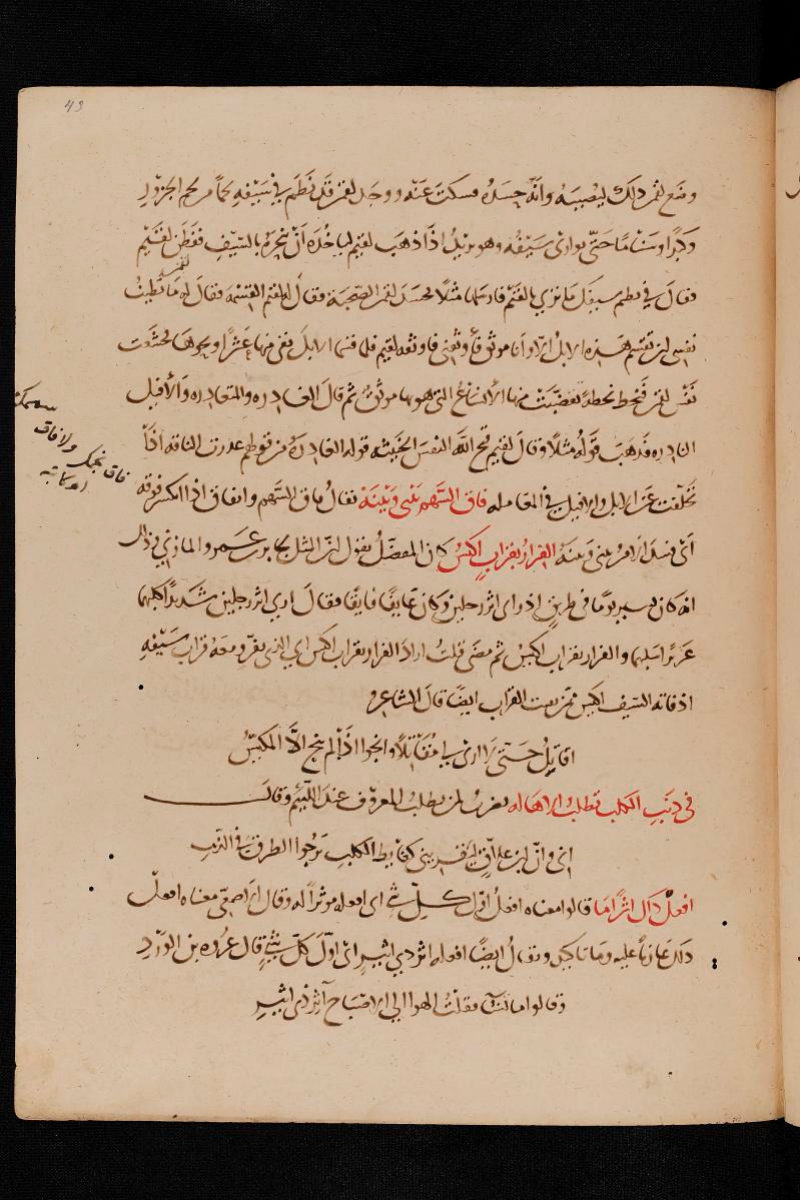 43
وضع لقمن ذلك ليصيبه وانه حسده فسكت عنه ووجد لقمن قد نظم في سيفه لحما من لحم الجزور
وكبدا وسناما حتى توارى سيفه وهو يريد اذا ذهب لقيم لياخذه ان ينحره بالسيف ففطن لقيم
فقال في نظم سيفك ما ترى يا لقيم فارسلها مثلا فحسد لقمن الصحبة فقال له لقيم القسمة فقال له لقمن ما تطيب
نفسي ان تقسم هذه الابل الا وانا موثق فاوثقني فاوثقه لقيم فلما قسمها الابل نقى منها عشرا او نحوها فجشعت
نفس لقمن فنحط نحطة تقضبت منها الانساع التي هو بها موثق ثم قال الغادره والمتغادره والافيل
النادره فذهب قوله مثلا وقال لقيم قبح الله النفس الخبيثه قوله الغادرة من قولهم غدرت الناقه اذا
تخلفت عن الابل والافيل فاق السهم بيني وبينه يقال فاق السهم وانفاق اذا انكسر فوقه
اي فسد الامر بيني وبينه الفرار بقراب اكيس كان المفضل يقول ان المثل لجابر بن عمرو المازني وذلك
انه كان يسير يوما في طريق اذ راى اثر رجلين وكان عايفا قايفا فقال ارى اثر رجلين شديدا كلبهما
عزيزا سلبهما والفرار بقراب اكيس ثم مضى قلت اراد الفرار بقراب اكيس اي الذي يفر ومعه قراب سيفه
اذ فاته السيف اكيس ممن يفيت القراب ايضا قال الشاعر
اقاتل حتى لا ارى لي مقاتلا وانجوا اذا لم ينج الا المكيس
في ذنب الكلب تطلب الاهاله يضرب لمن يطلب المعروف عند اللئيم وقال
اني وان ابن علاق ليقريني كغابط الكلب يرجوا الطرق في الذنب
افعل ذاك اثرا ما قالوا معناه افعله اول كل شئ اي افعله موثرا له وقال الاصمعي معناه افعل
ذلك عازما عليه وما تاكيد ويقال ايضا افعله اثر ذي اثير اي اول كل شئ قال عروه بن الورد
وقالوا ما تشا فقلت الهوا الى الاصباح آثر ذي اثير